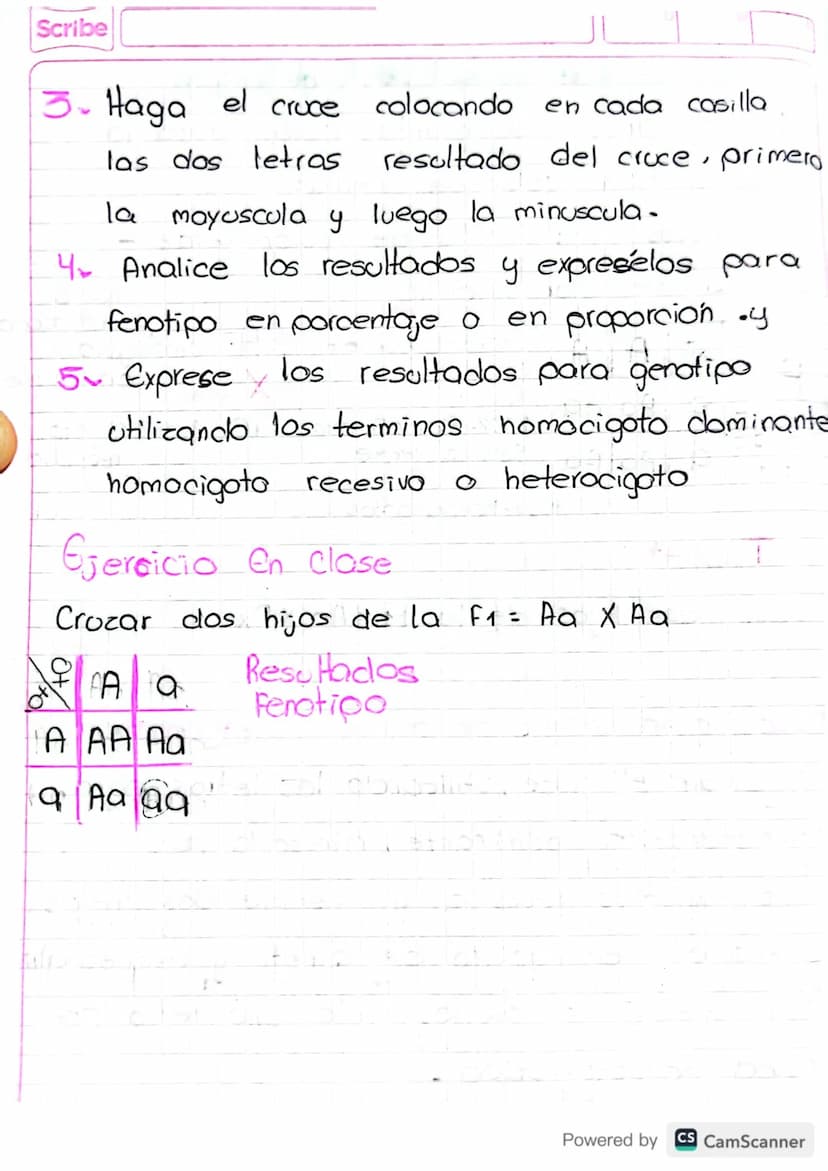 Scribe
3- Haga el cruce colocando en cada casilla
las dos letras resultado del cruce, primero
la mayuscula y luego la minuscula.
4- Analice los resultados y expreselos para
fenotipo en porcentaje o en proporcion .y
5- Exprese los resultados para genotipo
utilizando los terminos homocigoto dominante
homocigoto recesivo o heterocigoto
Ejercicio En Clase
Cruzar dos hijos de la F1 = Aa X Aa
♂ ♀ A a
A AA Aa
a Aa aa
Resultados
Fenotipo
Powered by CS CamScanner